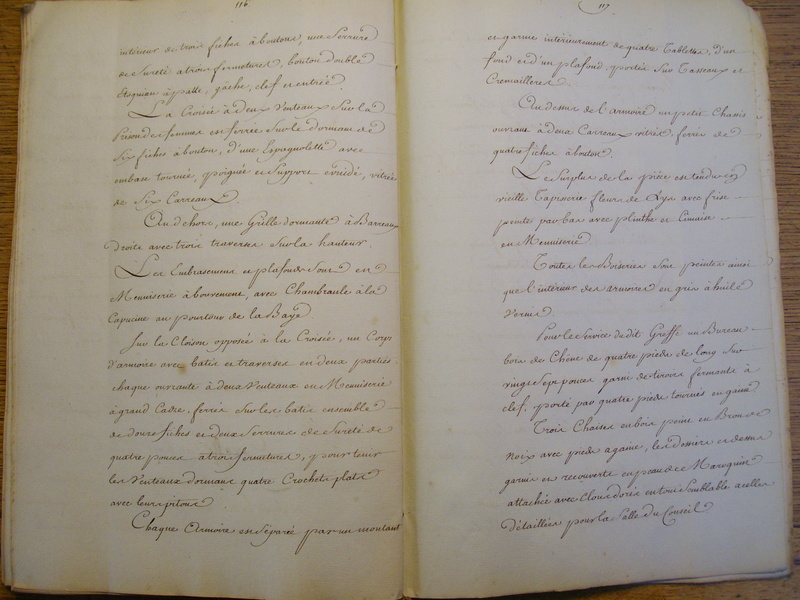 116
intérieur de trois fiches à boutons, une Serrure
de Sureté a trois fermetures, bouton double
à patte, gache, clef et entrée
La Croisée à deux Venteaux Sur la
Prison des femmes est ferrée Sur le dormant de
Six fiches à bouton, d'une Espagnolette avec
embase tournée, poignée et Support évuidé, vitrée
de Six Carreaux
Au dehors, une Grille dormante à Barreaux
Droits avec trois traverses Sur la hauteur.
Les Embrasemens et plafonds Sont en
Menuiserie à bouvement, avec Chambranle à la
Capucine au pourtour de la Baye
Sur la Cloison opposée à la Croisée, un Corps
d'armoire avec batis et traverses en deux parties
chaque ouvrante à deux Venteaux en Menuiserie
à grand Cadre, ferrés Sur les batis ensemble
de douze fiches et deux Serrures de Sureté de
quatre pouces a trois fermetures, pour tenir
les Venteaux dormans quatre Crochets plats
avec leurs pitons
Chaque Armoire est Séparée par un montant
117
et garnie intérieurement de quatre Tablettes, d'un
fond et d'un plafond, portés Sur Tasseaux et
Cremailleres
Au dessus de l'armoire un petit Chassis
ouvrant à deux Carreaux vitrés ferrés de
quatre fiches à bouton
Le Surplus de la pièce est tendu en
vieille Tapisserie fleur de Lys avec frise
peinte par bas avec plinthe et Cimaise
en Menuiserie
Toutes les Boiseries Sont peintes ainsi
que l'intérieur des armoires en gris à huile
Vernis
Pour le Service dudit Greffe un Bureau
bois de Chêne de quatre pieds de long Sur
vingt Sept pouces garni de tiroirs fermants à
clef, porté par quatre pieds tournés en gaine
Trois Chaises en bois peint en Brou de
Noix avec pieds a gaine, les dossiers et dessus
garnis et recouverts en peau de Maroquin
attachée avec Clous dorés en tout Semblable a celles
Détaillées pour la Salle du Conseil